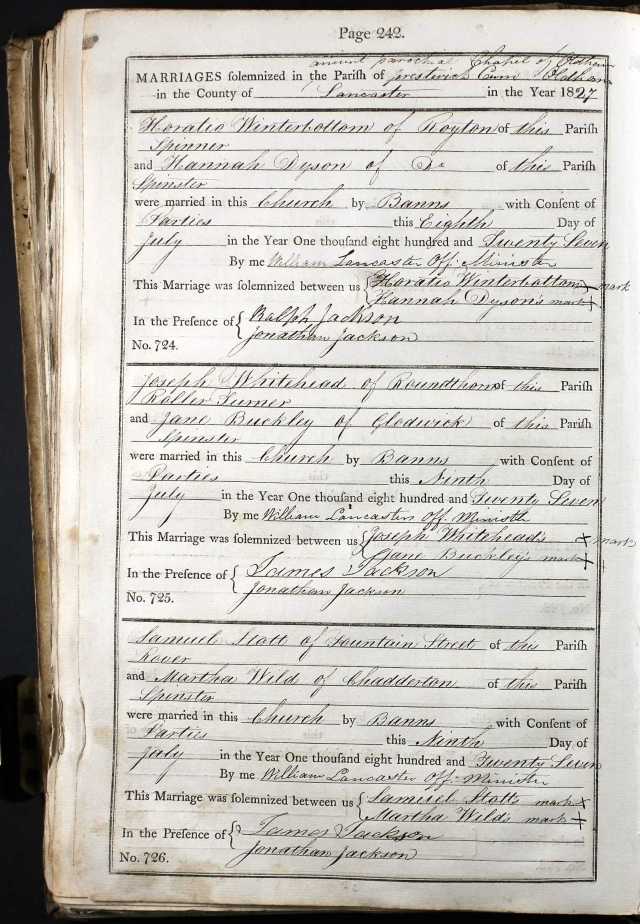 Page 242.
ancient parochial Chapel of Oldham
MARRIAGES solemnized in the Parish of Prestwich Cum Oldham
in the County of Lancaster in the Year 1827
Horatio Winterbottom of Royton of this Parish
Spinner
and Hannah Dyson of Do of this Parish
Spinster
were married in this Church by Banns with Consent of
Parties this Eighth Day of
July in the Year One thousand eight hundred and Twenty Seven
By me William Lancaster Off. Minister
This Marriage was solemnized between us { Horatio Winterbottom X mark
Hannah Dyson's mark X
In the Presence of { Ralph Jackson
Jonathan Jackson
No. 724.
Joseph Whitehead of Roundthorn of this Parish
Roller Turner
and Jane Buckley of Glodwick of this Parish
Spinster
were married in this Church by Banns with Consent of
Parties this Ninth Day of
July in the Year One thousand eight hundred and Twenty Seven
By me William Lancaster Off. Minister
This Marriage was solemnized between us { Joseph Whitehead's X mark
Jane Buckley's mark X
In the Presence of { James Jackson
Jonathan Jackson
No. 725.
Samuel Stott of Fountain Street of this Parish
Rover
and Martha Wild of Chadderton of this Parish
Spinster
were married in this Church by Banns with Consent of
Parties this Ninth Day of
July in the Year One thousand eight hundred and Twenty Seven
By me William Lancaster Off. Minister
This Marriage was solemnized between us { Samuel Stott's mark X
Martha Wild's mark X
In the Presence of { James Jackson
Jonathan Jackson
No. 726.